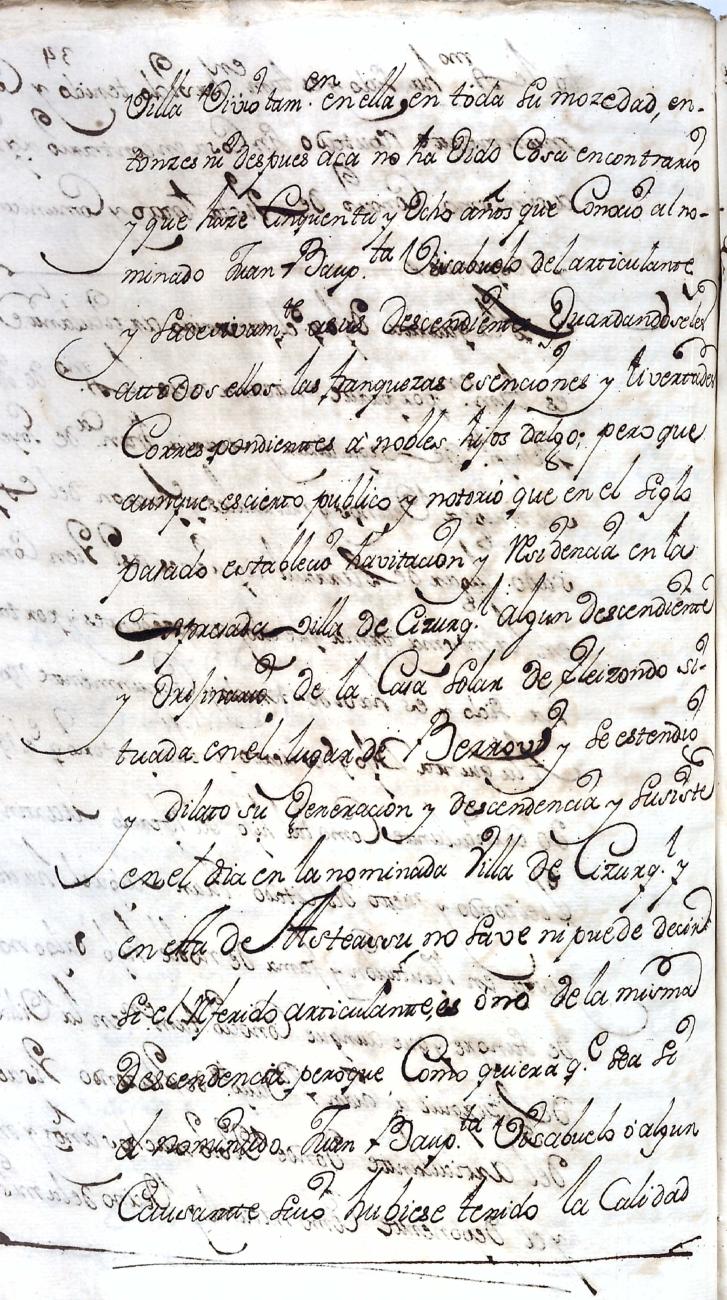 Villa Vivio tam.en en ella, en toda su mozedad, en-
tonzes ni despues aca no ha oido Cosa encontrario
y que haze Cinquenta y Ocho años que Conocio al no-
minado Juan Baup.ta Visabuelo del articulante
y subcesivam.te a sus Descendientes Guardandoseles
atodos ellos las franquezas esenciones y livertades
Correspondientes a nobles hijos dalgo; pero que
aunque es cierto publico y notorio que en el siglo
pasado establecio havitacion y Residencia en la
Expresada Villa de Cizurq.l algun descendiente
y Originario de la Casa Solar de Eleizondo si-
tuada en el lugar de Berrovi y se estendio
y dilato su Generacion y descendencia y susiste
en el dia en la nominada Villa de Cizurq.l y
en esta de Asteassu, no save ni puede decir
si el Referido articulante, es ono de la misma
Descendencia, peroque Como quiera q.e sea si
el nominado Juan Baup.ta Visabuelo o algun
Causante suio hubiese tenido la Calidad